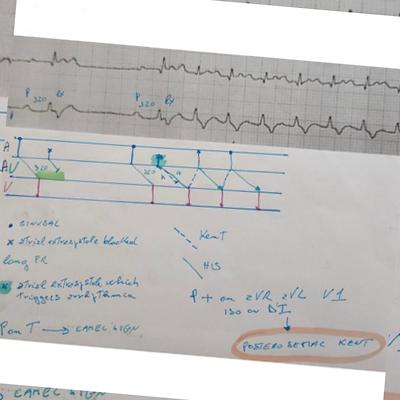 P 320 Rx P 320 Rx
A
AV 320 320
V
• SINUSAL
x atrial extrasystole blocked
long PR
x atrial extrasystole which
triggers arrhythmia
P on T → CAMEL SIGN
KENT
HIS
P + on aVR aVL V1
iso on DI
↓
POSTEROSEPTAL KENT
CAMEL SIGN